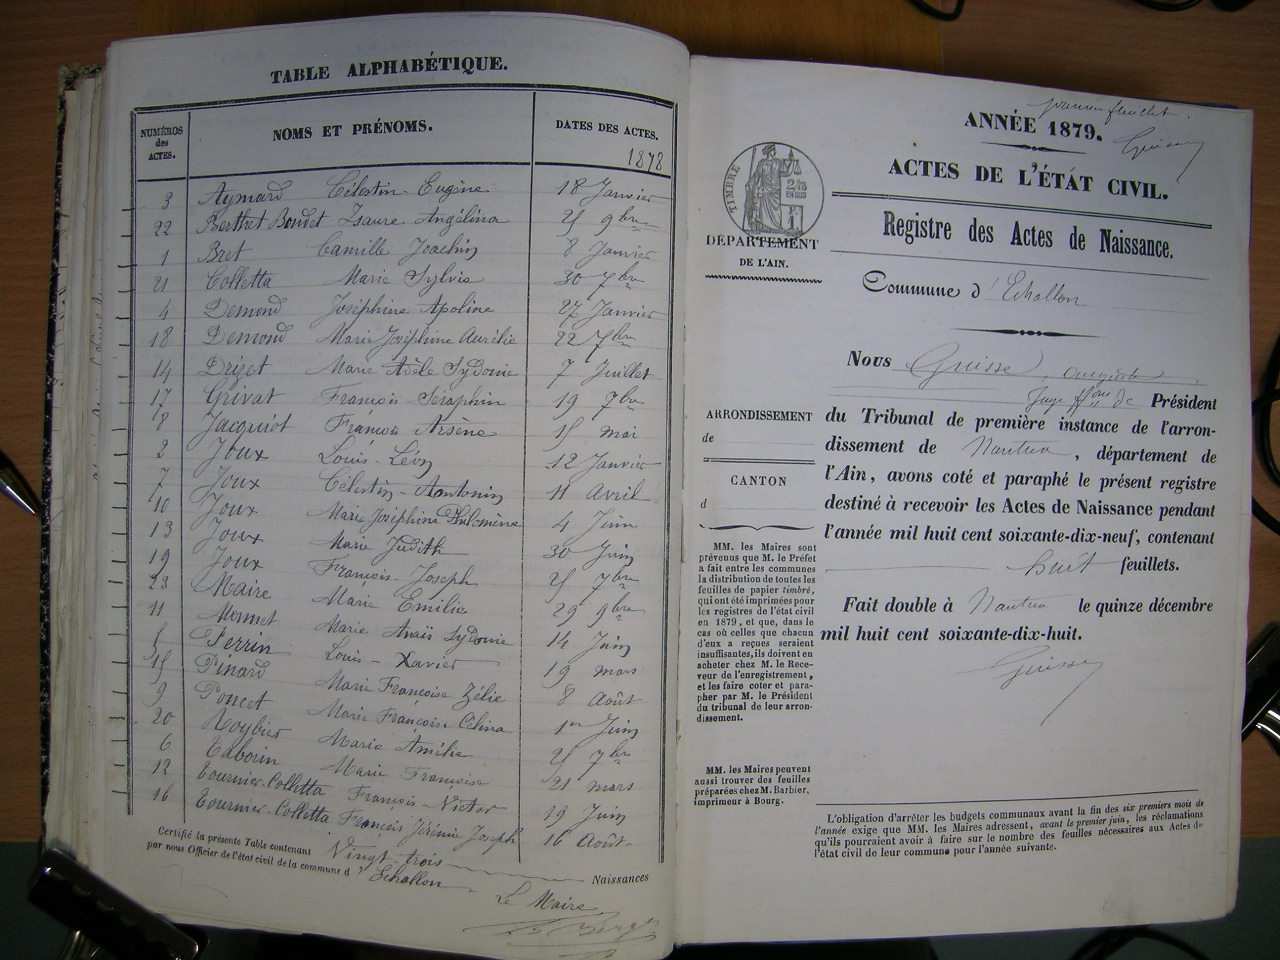 TABLE ALPHABÉTIQUE.
NUMÉROS des ACTES. NOMS ET PRÉNOMS. DATES DES ACTES.
1878
3 Aymard Célestin Eugène 18 Janvier
22 Berthet Bondet Isaure Angélina 25 9bre
1 Bret Camille Joachim 8 Janvier
21 Colletta Marie Sylvie 30 7bre
4 Demond Joséphine Apoline 27 Janvier
18 Demond Marie Joséphine Aurélie 22 7bre
14 Drizet Marie Adèle Sydonie 7 Juillet
17 Grivat François Séraphin 19 7bre
8 Jacquiot François Arsène 15 mai
2 Joux Louis-Léon 12 Janvier
7 Joux Célestin-Antonin 11 Avril
10 Joux Marie Joséphine Philomène 4 Juin
13 Joux Marie Judith 30 Juin
19 Joux François-Joseph 25 7bre
23 Maire Marie Emilie 29 9bre
11 Monnet Marie Anaïs Sydonie 14 Juin
5 Perrin Louis-Xavier 19 mars
15 Pinard Marie Françoise Zélie 8 Août
9 Poncet Marie Françoise Célina 1er Juin
20 Roybier Marie Amélie 25 7bre
6 Taborin Marie Françoise 21 mars
12 Tournier-Colletta François-Victor 19 Juin
16 Tournier-Colletta François Jérémie Joseph 16 Août
Certifié la présente Table contenant Vingt-trois Naissances
par nous Officier de l'état civil de la commune d'Echallon
Le Maire
premier feuillet.
Guisse
ANNÉE 1879.
ACTES DE L'ÉTAT CIVIL.
Registre des Actes de Naissance.
TIMBRE
DÉPARTEMENT
DE L'AIN.
Commune d'Echallon
Nous Guisse, auguste,
Juge ffons de Président
du Tribunal de première instance de l'arron-
dissement de Nantua, département de
l'Ain, avons coté et paraphé le présent registre
destiné à recevoir les Actes de Naissance pendant
l'année mil huit cent soixante-dix-neuf, contenant
huit feuillets.
Fait double à Nantua le quinze décembre
mil huit cent soixante-dix-huit.
Guisse
ARRONDISSEMENT
de
CANTON
d
MM. les Maires sont
prévenus que M. le Préfet
a fait entre les communes
la distribution de toutes les
feuilles de papier timbré,
qui ont été imprimées pour
les registres de l'état civil
en 1879, et que, dans le
cas où celles que chacun
d'eux a reçues seraient
insuffisantes, ils doivent en
acheter chez M. le Rece-
veur de l'enregistrement,
et les faire coter et para-
pher par M. le Président
du tribunal de leur arron-
dissement.
MM. les Maires peuvent
aussi trouver des feuilles
préparées chez M. Barbier,
imprimeur à Bourg.
L'obligation d'arrêter les budgets communaux avant la fin des six premiers mois de
l'année exige que MM. les Maires adressent, avant le premier juin, les réclamations
qu'ils pourraient avoir à faire sur le nombre des feuilles nécessaires aux Actes de
l'état civil de leur commune pour l'année suivante.